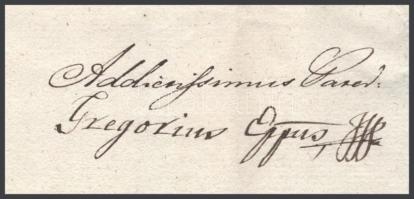 Addictissimus
Gregorius Eppus